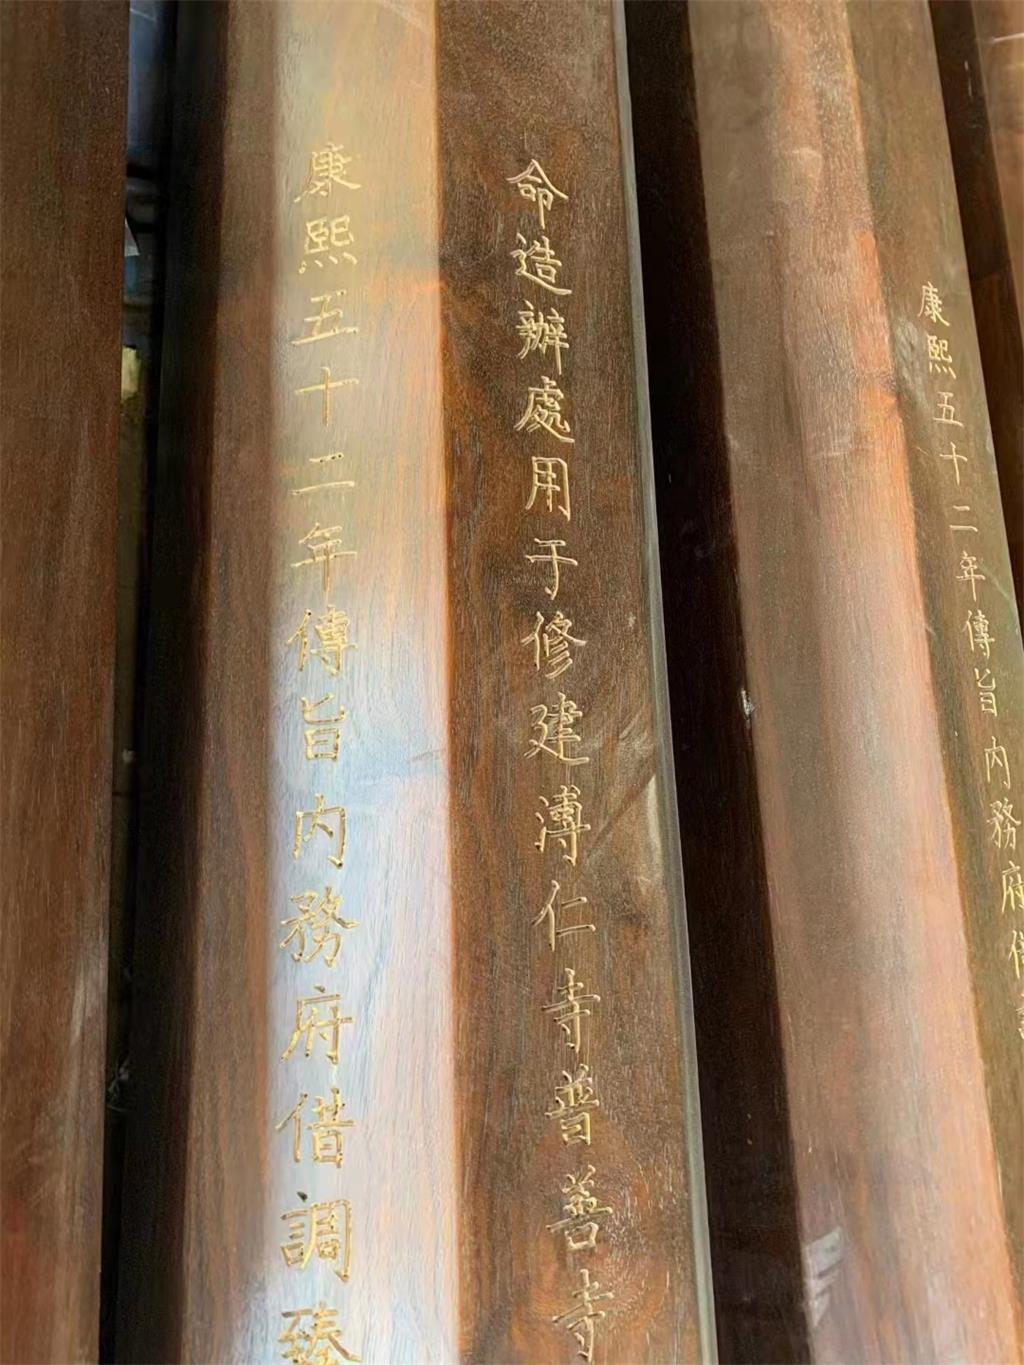 康熙五十二年傳旨内務府借調
命造辦處用于修建溥仁寺普善寺
康熙五十二年傳旨内務府借